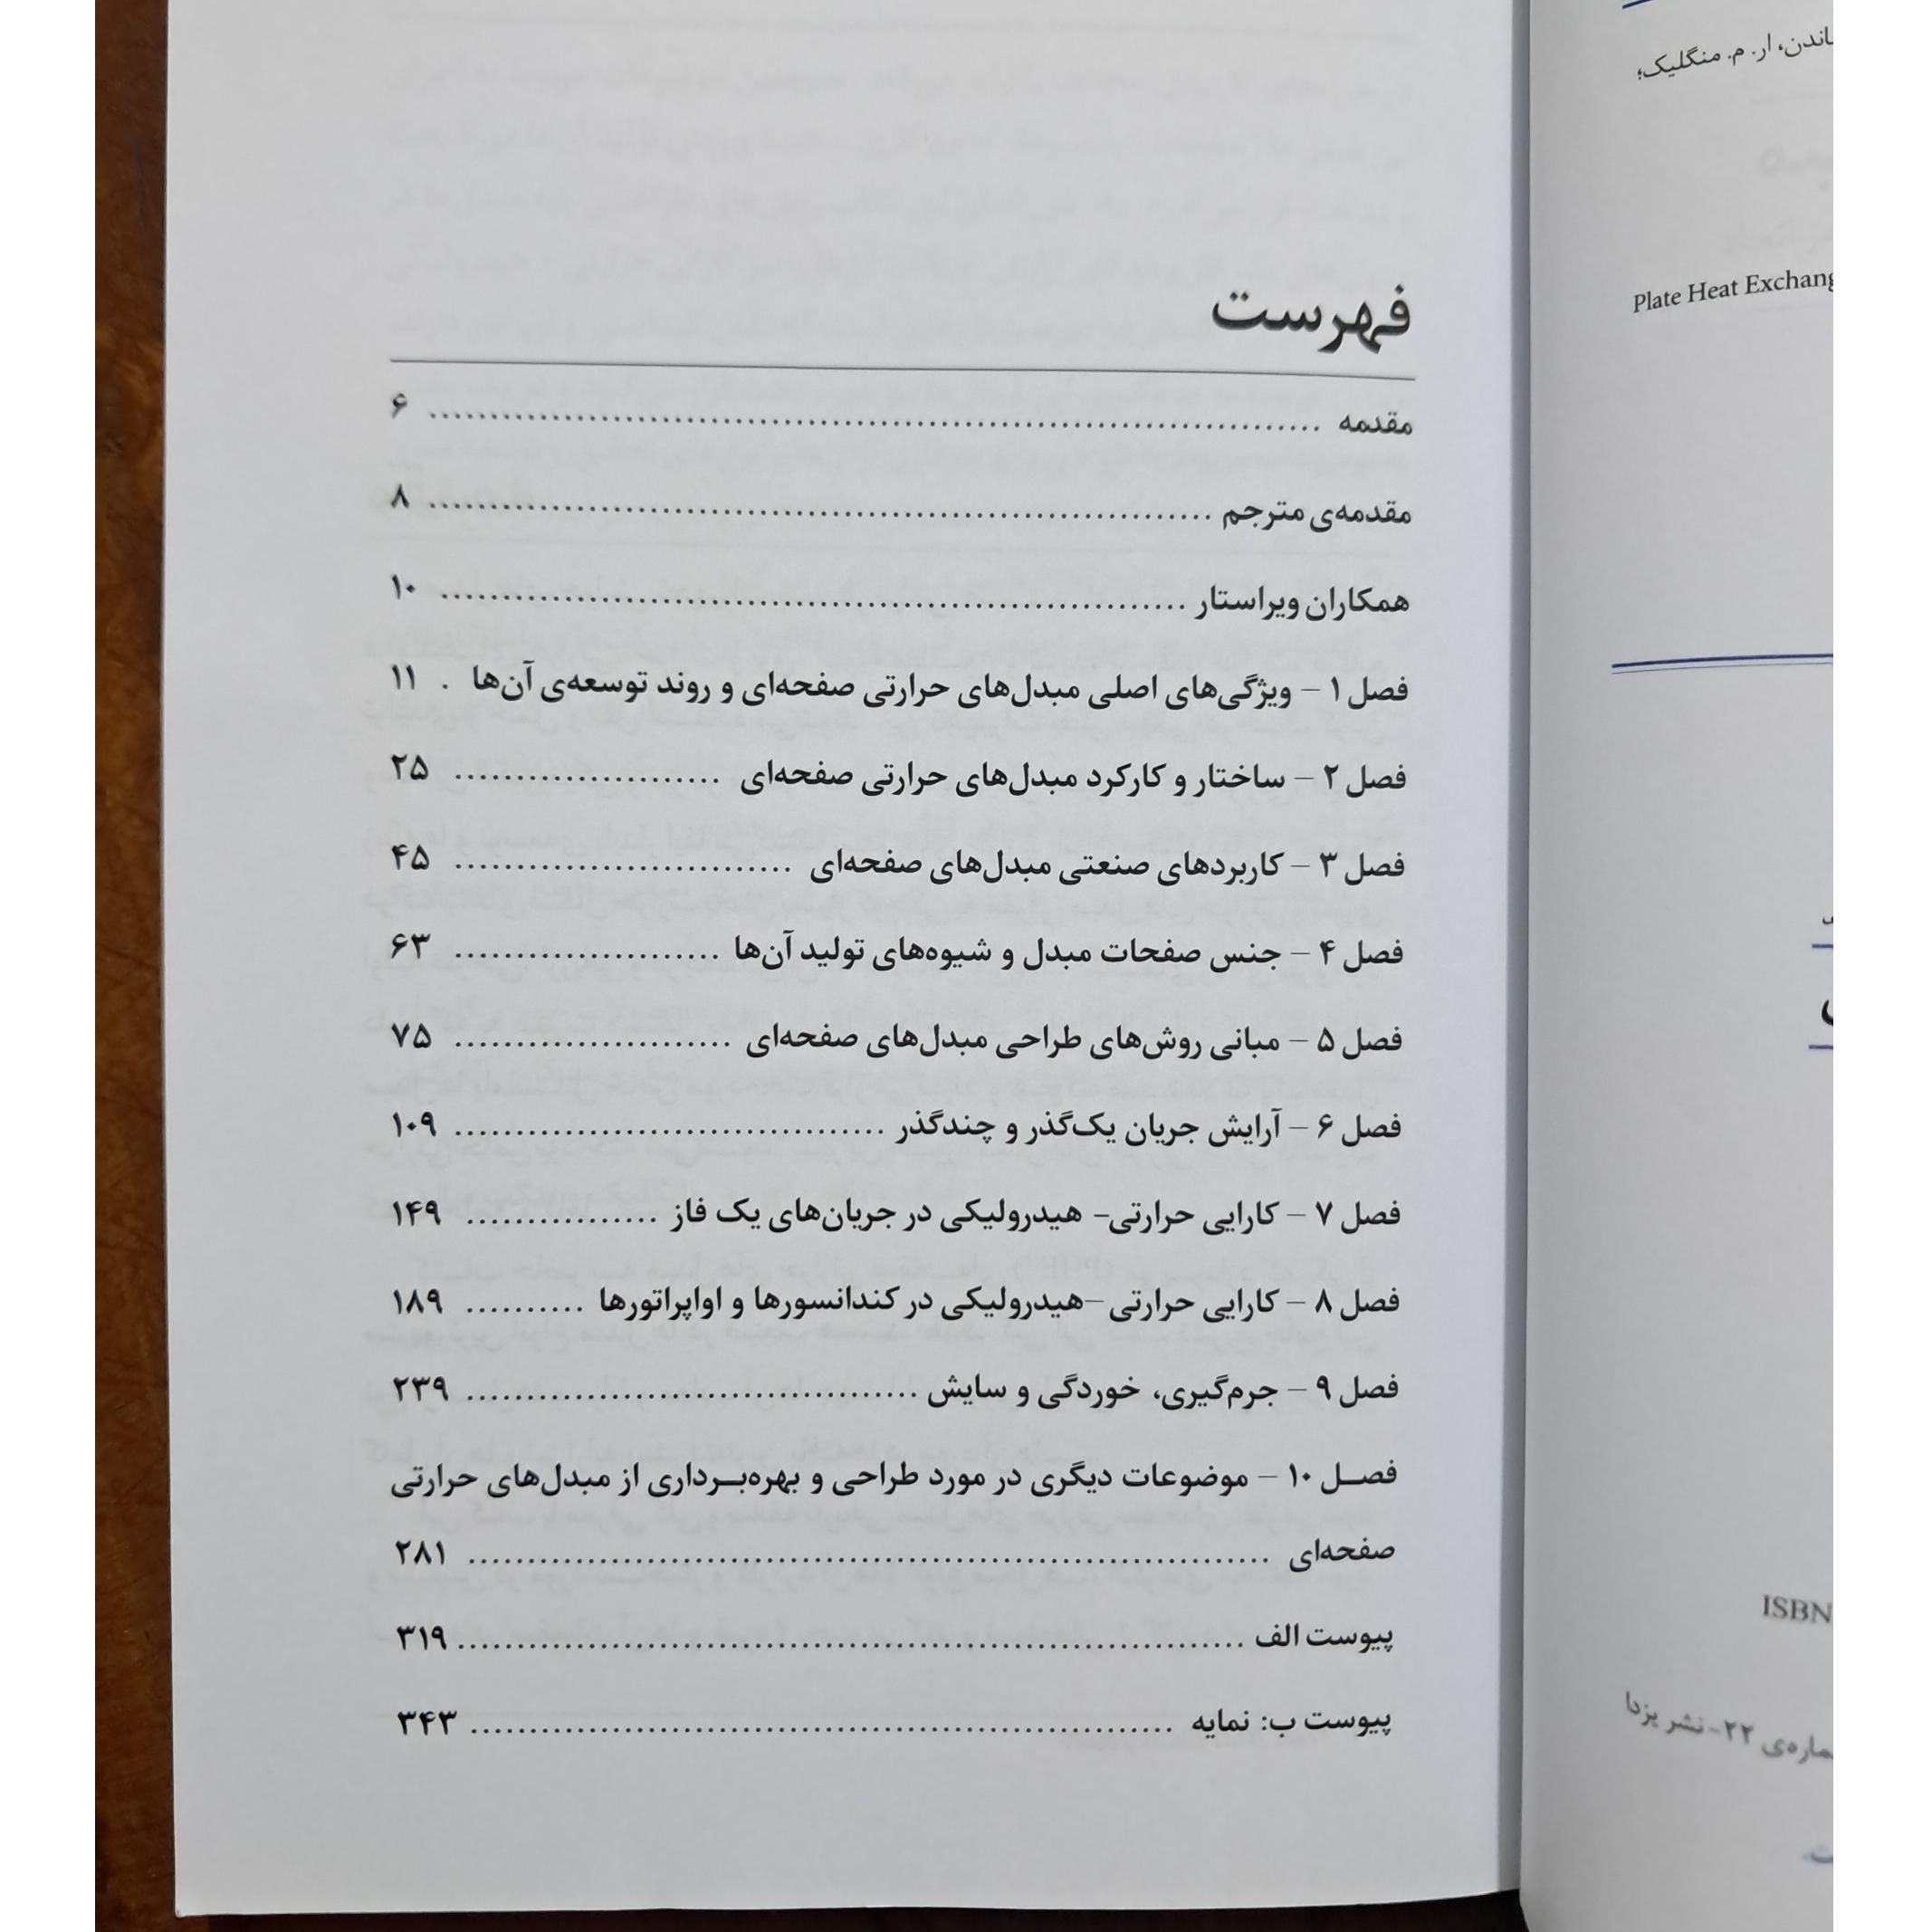 فهرست
مقدمه ........................................ ۶
مقدمه‌ی مترجم ........................................ ۸
همکاران ویراستار ........................................ ۱۰
فصل ۱ – ویژگی‌های اصلی مبدل‌های حرارتی صفحه‌ای و روند توسعه‌ی آن‌ها . ۱۱
فصل ۲ – ساختار و کارکرد مبدل‌های حرارتی صفحه‌ای ...................... ۲۵
فصل ۳ – کاربردهای صنعتی مبدل‌های صفحه‌ای ............................ ۴۵
فصل ۴ – جنس صفحات مبدل و شیوه‌های تولید آن‌ها ...................... ۶۳
فصل ۵ – مبانی روش‌های طراحی مبدل‌های صفحه‌ای ....................... ۷۵
فصل ۶ – آرایش جریان یک‌گذر و چندگذر .................................... ۱۰۹
فصل ۷ – کارایی حرارتی- هیدرولیکی در جریان‌های یک فاز ................ ۱۴۹
فصل ۸ – کارایی حرارتی –هیدرولیکی در کندانسورها و اواپراتورها .......... ۱۸۹
فصل ۹ – جرم‌گیری، خوردگی و سایش ...................................... ۲۳۹
فصــل ۱۰ – موضوعات دیگری در مورد طراحی و بهره‌بــرداری از مبدل‌های حرارتی
صفحه‌ای ........................................ ۲۸۱
پیوست الف ........................................ ۳۱۹
پیوست ب: نمایه ........................................ ۳۴۳
ار. م. منگلیک؛
Plate Heat Exchang
ISBN
۲۲-نشر یزدا